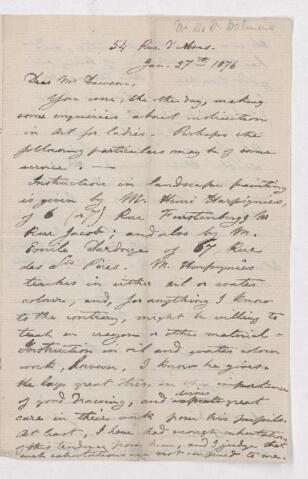 54 Rue d'Assas.
Jan. 27th 1876
Dear Mr Dawson,
You were, the other day, making
some enquiries about instruction
in Art for ladies. Perhaps the
following particulars may be of some
service. —
Instruction in landscape painting
is given by M. Henri Harpignies,
of 6 (or 7) Rue Furstenberg, nr
Rue Jacob; and also by M.
Emile Dardoize of 67 Rue
des Sts Pères. M. Harpignies
teaches in either oil or water
colour, and, for anything I know
to the contrary, might be willing to
teach in crayon or other material.
Instruction in oil and water colour
work, however, I know he gives.
He lays great stress on
of good Drawing, and serious great
care in their work from his pupils.
At least, I have had enough exhortation
of this tendency from him, and I judge that
such exhortations are not confined to me.